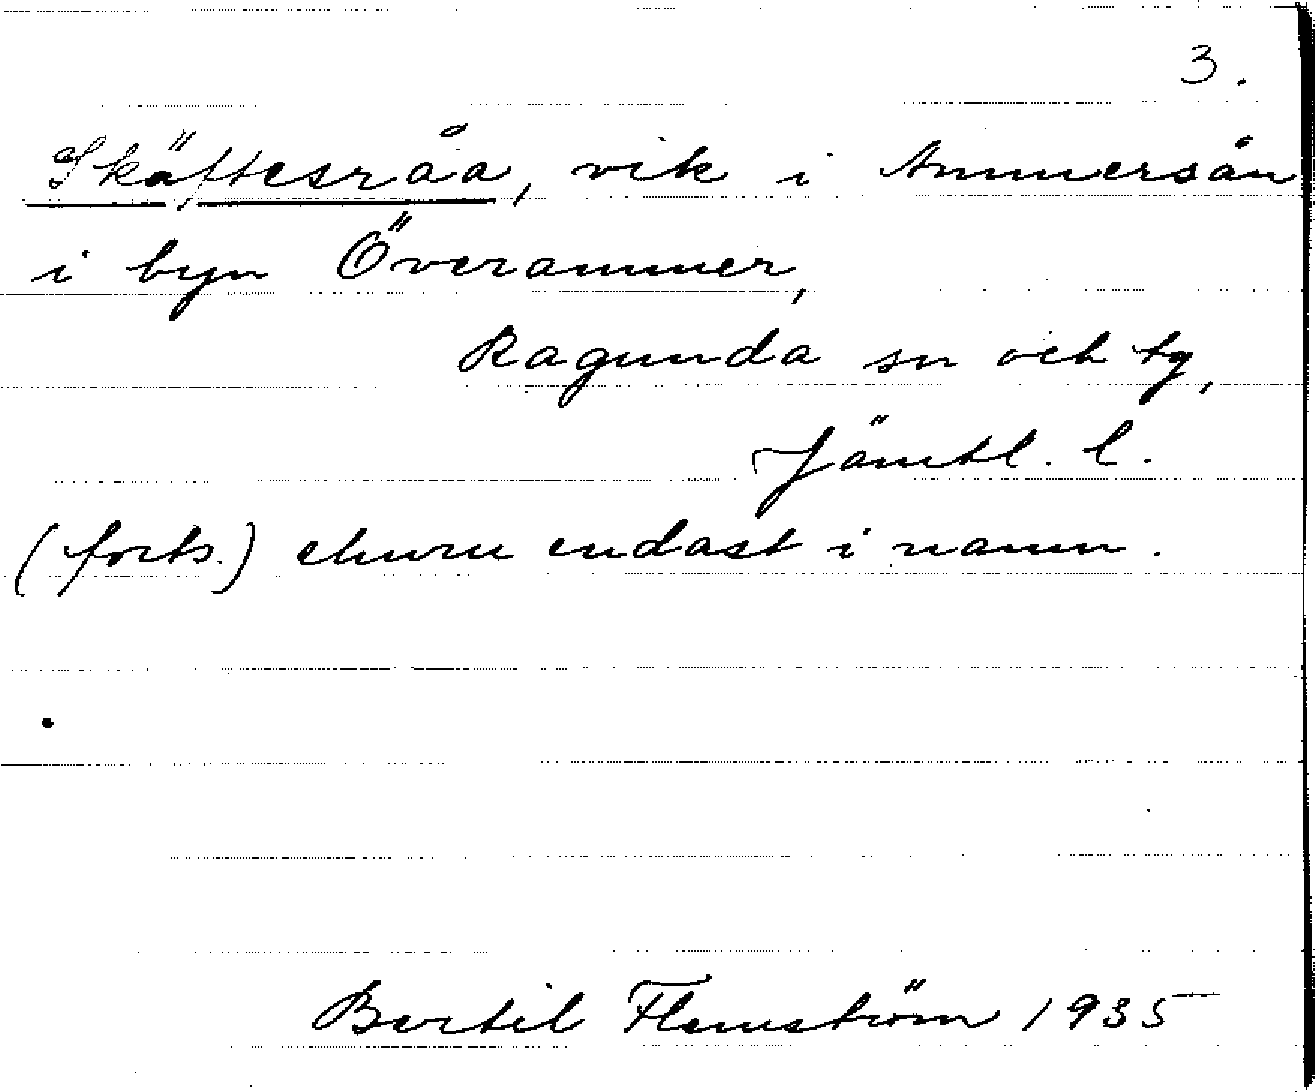 3.
Skäftesråa, vik i Ammersån
i byn Överammer,
Ragunda sn och tg,
Jämtl. l.
(forts.) ehuru endast i namn.
Bertil Flemström 1935